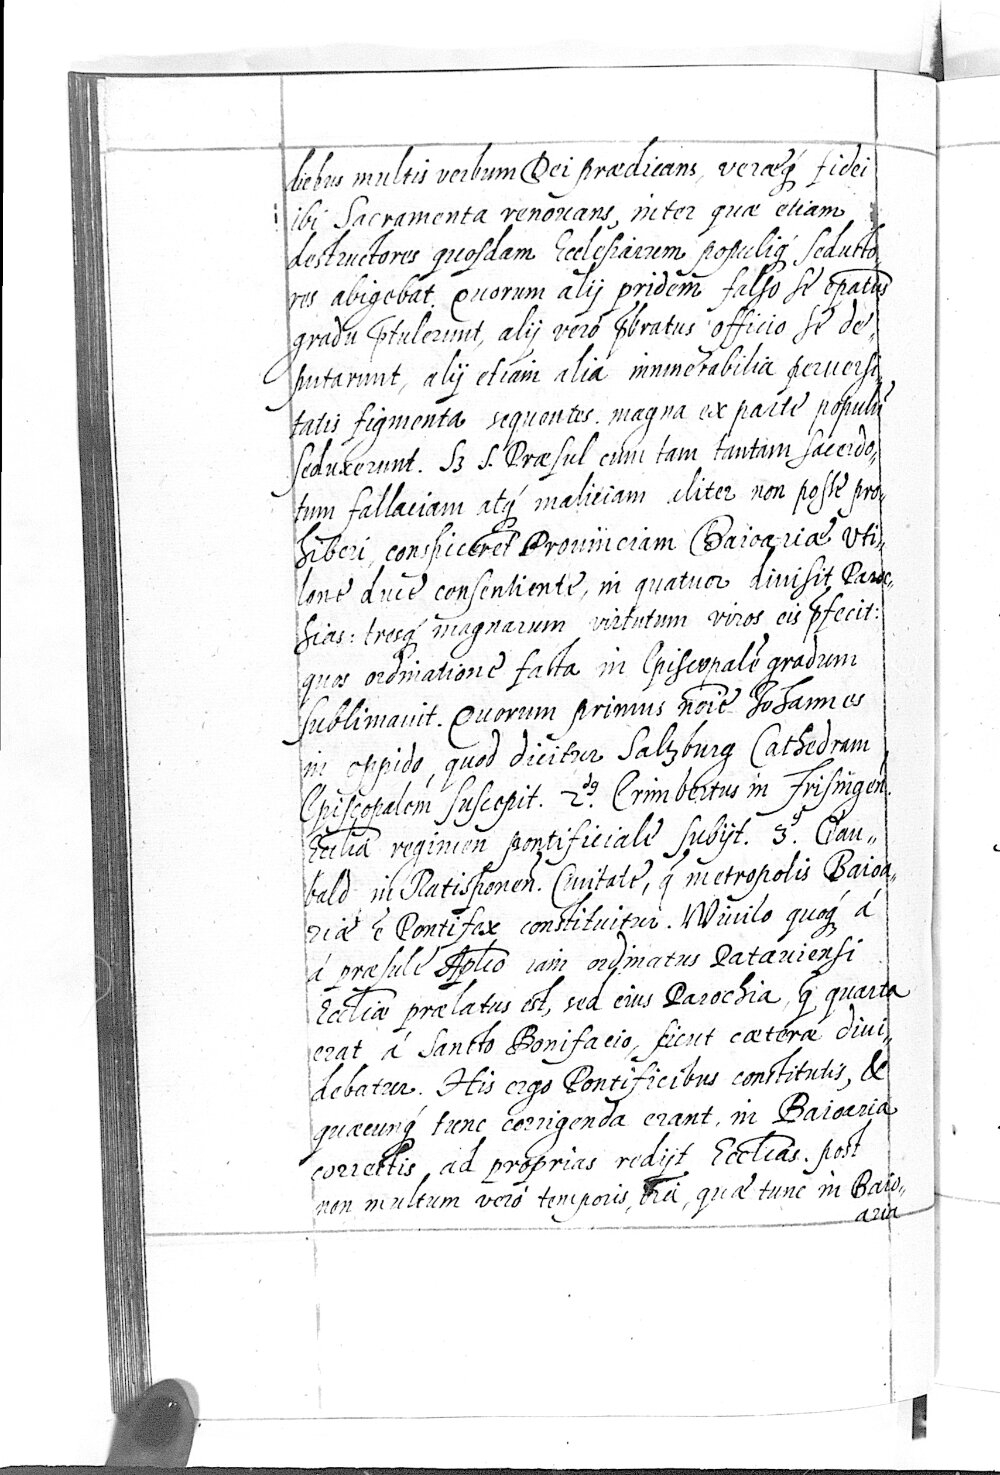 bebus multis verbum Dei prædicans, veræq́ fidei
ibi Sacramenta renouans, inter quæ etiam
destructores quosdam Ecclesiarum populiq́ seducto,,
res abigebat. Quorum alij pridem falso se epatus
gradu p̄tulerunt, alij vero p̄bratus officio se de,,
putarunt, alij etiam alia innumerabilia peruersi,,
tatis figmenta sequentes. magna ex parte populū
seduxerunt. Sz S. Præsul cum tam tantam sacerdo,,
tum fallaciam atq́ maliciam aliter non posse pro,,
hiberi, conspiceret Prouinciam Baioariæ Vti,,
lone duce consentiente, in quatuor diuisit Paroc,,
hias: tresq́ magnarum virtutum viros eis p̄fecit:
quos ordinatione facta in Episcopale gradum
sublimauit. Quorum primus noīe Johannes
in oppido, quod dicitur Salzburg Cathedram
Episcopalem suscepit. 2dg. Erimbertus in Frisingen.
Ecclīa regimen pontificiale subijt. 3g. Gau,,
bald in Ratisponen. Ciuitate, q́ metropolis Baioa,,
riæ ē Pontifex constituitur. Wiuilo quoq́ á
á præsule Aplīco iam ordinatus Patauiensi
Ecclīæ prælatus est, sed eius Parochia, q̄ quarta
erat á Sancto Bonifacio, sicut cæteræ diui,,
debatur. His ergo Pontificibus constitutis, &
quæcunq́ tunc corrigenda erant, in Baioaria
correctis, ad proprias redijt Ecclīas. post
non multum veró temporis, quæ tunc in Baio,,
aria